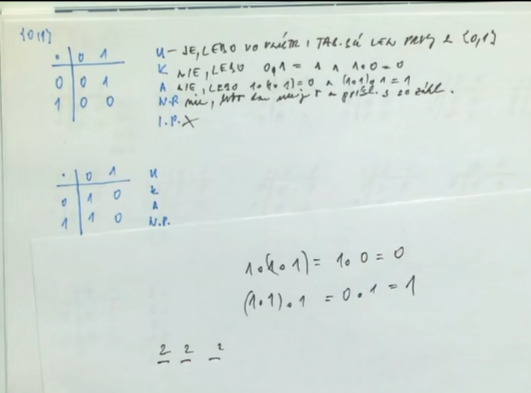 {0,1}
. | 0 1
0 | 0 1
1 | 0 0
U - JE, LEBO VO VNÚTRI TAB. SÚ LEN PRVKY Z {0,1}
K NIE, LEBO 0.1 = 1 ∧ 1.0 = 0
A NIE, LEBO 1.(1.1) = 0 ∧ (1.1).1 = 1
N.P. nie,
I.P. X
. | 0 1
0 | 1 0
1 | 1 0
U
K
A
N.P.
1.(1.1) = 1.0 = 0
(1.1).1 = 0.1 = 1
2 2 2